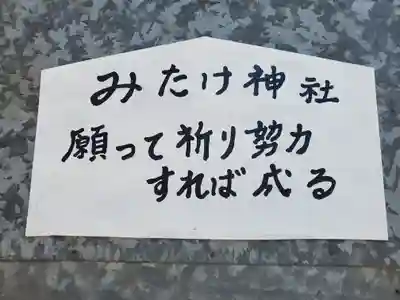 みたけ神社
願って祈り努力
すれば成る